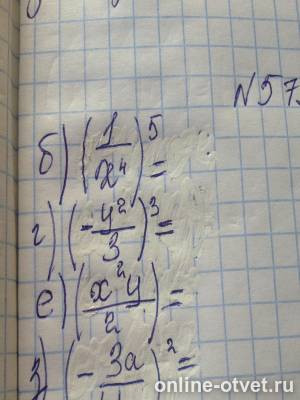 N573
б) (1/x⁴)⁵=
г) (-y²/3)³=
е) (x²y/2)=
з) (-3a/)²=
online-otvet.ru